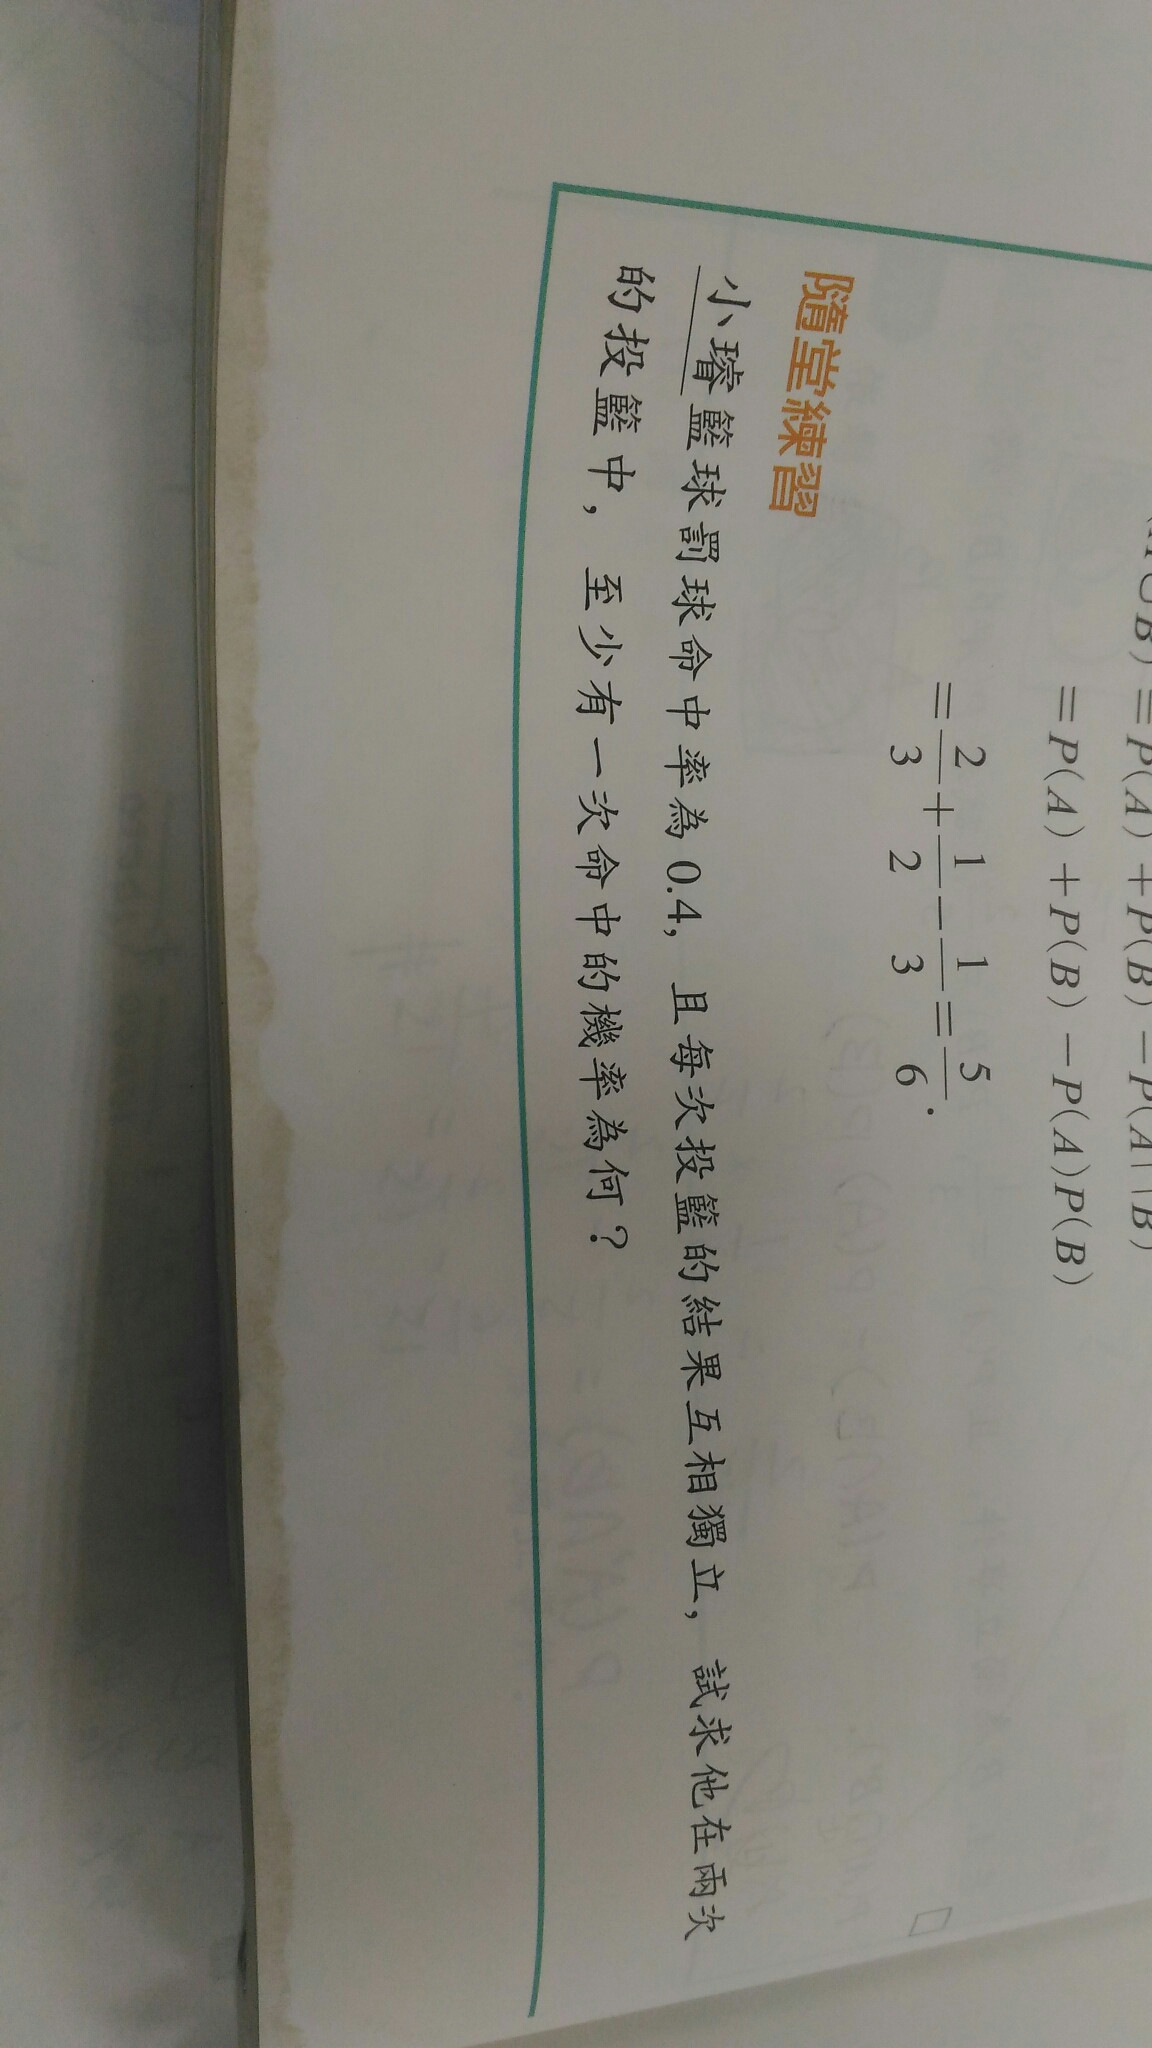 ∪B) = P(A) + P(B) − P(A∩B)
= P(A) + P(B) − P(A)P(B)
= 2/3 + 1/2 − 1/3 = 5/6 .
隨堂練習
小璿籃球罰球命中率為 0.4, 且每次投籃的結果互相獨立, 試求他在兩次
的投籃中, 至少有一次命中的機率為何?